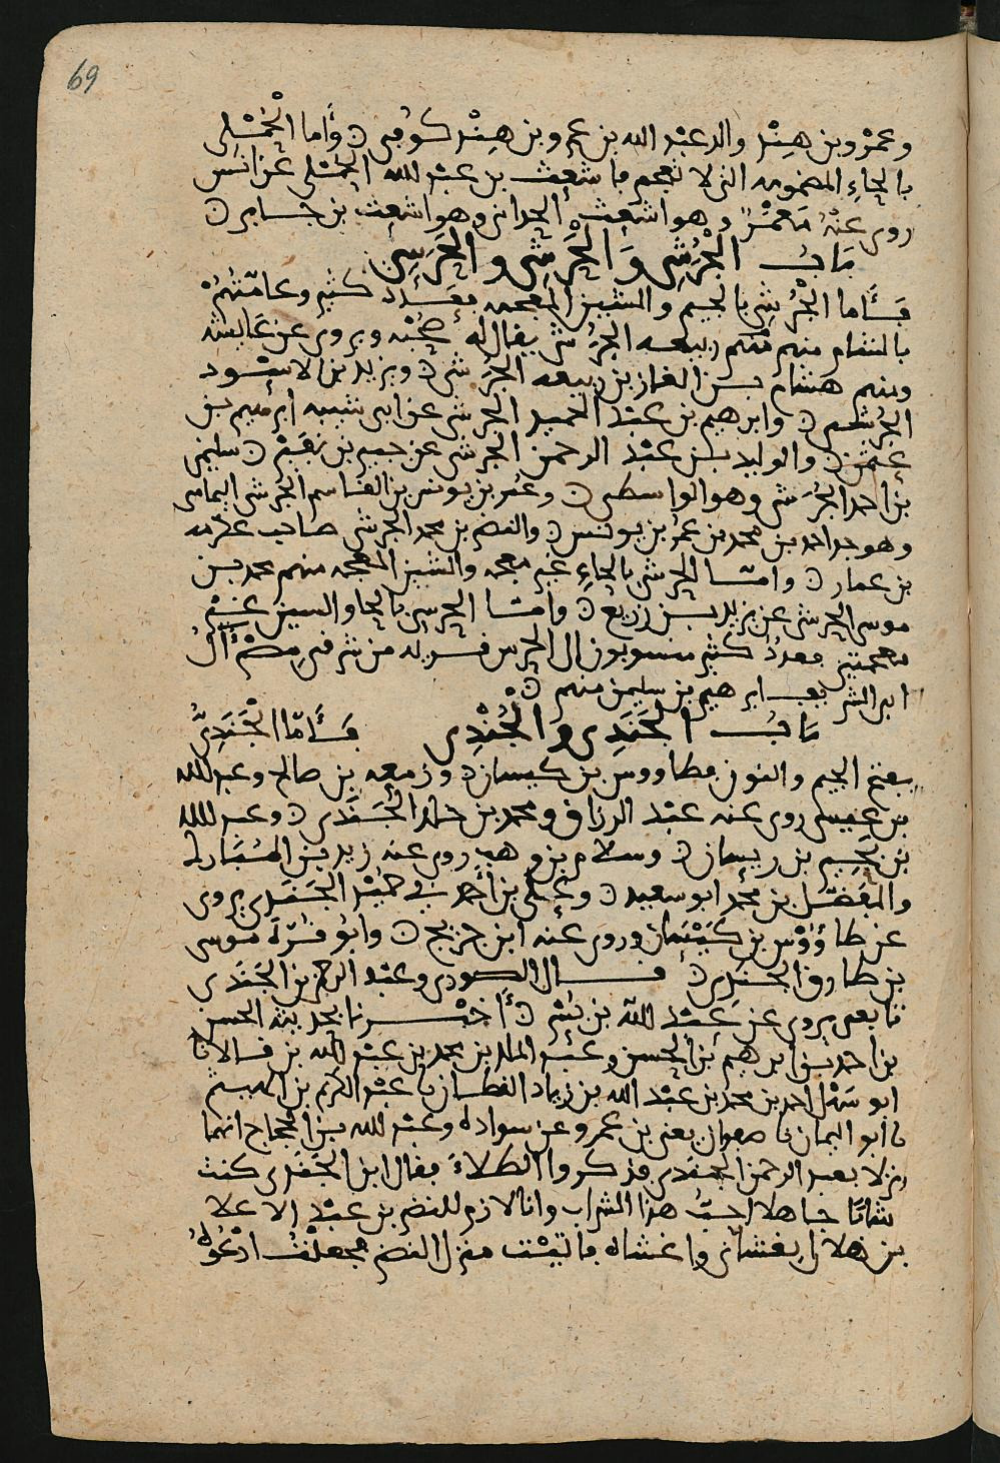 69
وعمرو بن هند والد عبد الله بن عمرو بن هند كوفي ۞ وأما الحُمْلي
بالحاء المضمومه التي لا تعجم فاشعث بن عبد الله الحملي عن انس
روى عنه معمر وهو اشعث الحداني وهو اشعث بن جابر ۞
باب الجُرَشي وَالحَرَشي والحَرَسي
فأما الجُرَشي بالجيم والشين المعجمه فعدد كثير وعامتهم
بالشام منهم ربيعه الجرشي يقال له صحبه ويروي عن عايشه
ومنهم هشام بن الغاز بن ربيعه الجرشي ۞ ويزيد بن الاسود
الجرشي ۞ وابرهيم بن عبد الحميد الجرشي عن ابي شيبه ابرهيم بن
عثمن ۞ والوليد بن عبد الرحمن الجرشي عن جبير بن نفير ۞ سليمن
بن احمد الجرشي وهو الواسطي ۞ وعمر بن يونس بن القاسم الجرشي اليمامي
وهو جد احمد بن محمد بن عمر بن يونس ۞ والنضر بن محمد الجرشي صاحب عكرمه
بن عمار ۞ وامّا الحرشي بالحاء غير معجمه والشين المعجمه منهم محمد بن
موسى الحرشي عن يزيد بن زريع ۞ وامّا الحرسي بالحا والسين غير
معجمتين فعدد كثير منسوبون الى الحرس قريه من شرقي مصر
ابرهيم بن سليمن منهم ۞
باب الجَنَدِي والجُنْدِي فأمّا الجَنَدِيُّ
بفتح الجيم والنون فطاووس بن كيسان ۞ وزمعه بن صالح وعبد الله
بن عيسى روى عنه عبد الرزاق ومحمد بن خلد الجندي ۞ وعبد الله
بن بحير بن ريسان ۞ وسلام بن وهب روى عنه زيد بن المبارك
والمفضل بن محمد ابو سعيد ۞ وعلي بن ابي حميد الجندي يروي
عن طاؤوس بن كيسان وروى عنه ابن جريج ۞ وابو قرة موسى
بن طارق الجندي ۞ قال الصوري وعبد الرحمن الجندي
تابعي يروي عن عبد الله بن بسر ۞ أخبرنا الحسن
بن احمد بن ابرهيم بن الحسن وعبد الملك بن محمد بن عبد الله بن قالا نا
ابو سهل احمد بن محمد بن عبد الله بن زياد القطان نا عبد الكريم بن الهيثم
نا ابو اليمان نا صفوان يعني بن عمرو عن سواده وعبد الله بن الحجاج انهما
نزلا بعبد الرحمن الجندي فذكروا الطلاءَ فقال ابن الجندي كنت
شابًا جاهلا احبُّ هذا الشراب وانا لازم للنضر بن عبد الاعلا
بن هلال يغشاني واغشاه فاتيت منزل النضر فجعلت ادعُوهُ